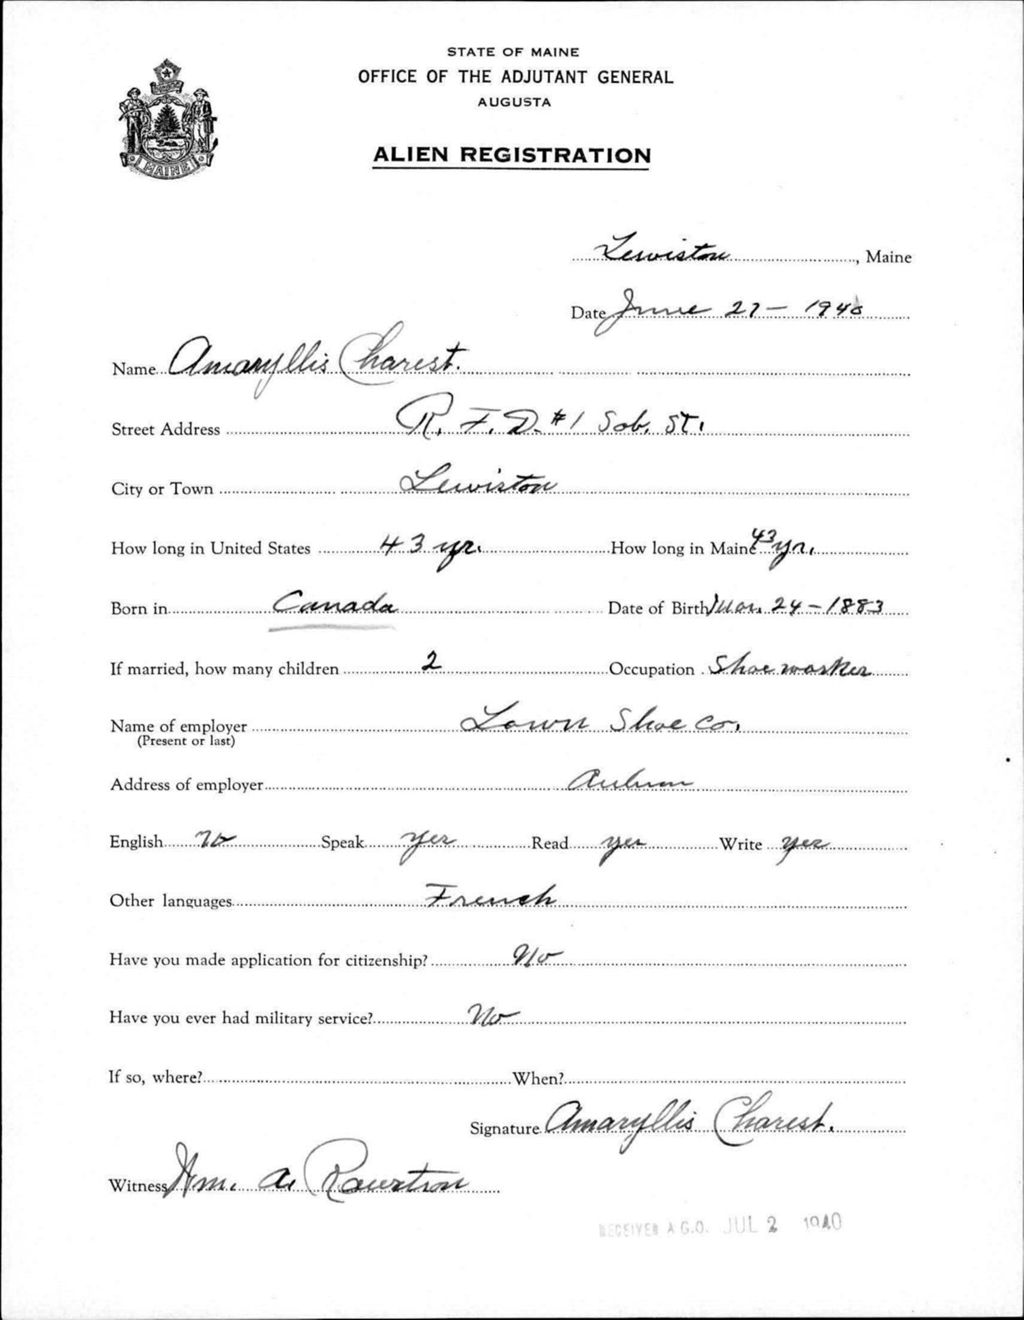 STATE OF MAINE
OFFICE OF THE ADJUTANT GENERAL
AUGUSTA
ALIEN REGISTRATION
MAINE
Lewiston, Maine
Date June 27 - 1940
Name Amaryllis Charest.
Street Address R. F. D. #1 Sab. St.
City or Town Lewiston
How long in United States 43 yr. How long in Maine 43 yr.
Born in Canada Date of Birth Mar. 24 - 1883
If married, how many children 2 Occupation Shoe worker
Name of employer Lown Shoe Co.
(Present or last)
Address of employer Auburn
English No Speak Yes Read yes Write yes
Other languages French
Have you made application for citizenship? No
Have you ever had military service? No
If so, where? When?
Signature Amaryllis Charest.
Witness Wm. A.
RECEIVED A.G.O. JUL 2 1940